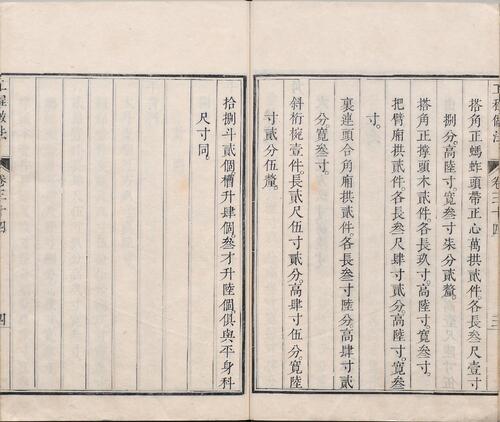 搭角正螞蚱頭帶正心萬拱貳件各長叁尺壹寸
捌分高陸寸寬叁寸柒分貳釐
搭角正撑頭木貳件各長玖寸高陸寸寬叁寸
把臂廂拱貳件各長叁尺肆寸貳分高陸寸寬叁
寸
裏連頭合角廂拱貳件各長叁寸陸分高肆寸貳
分寬叁寸
斜桁椀壹件長貳尺伍寸貳分高肆寸伍分寬陸
寸貳分伍釐
拾捌斗貳個槽升肆個叁才升陸個俱與平身科
尺寸同
工程做法 卷三十四 四